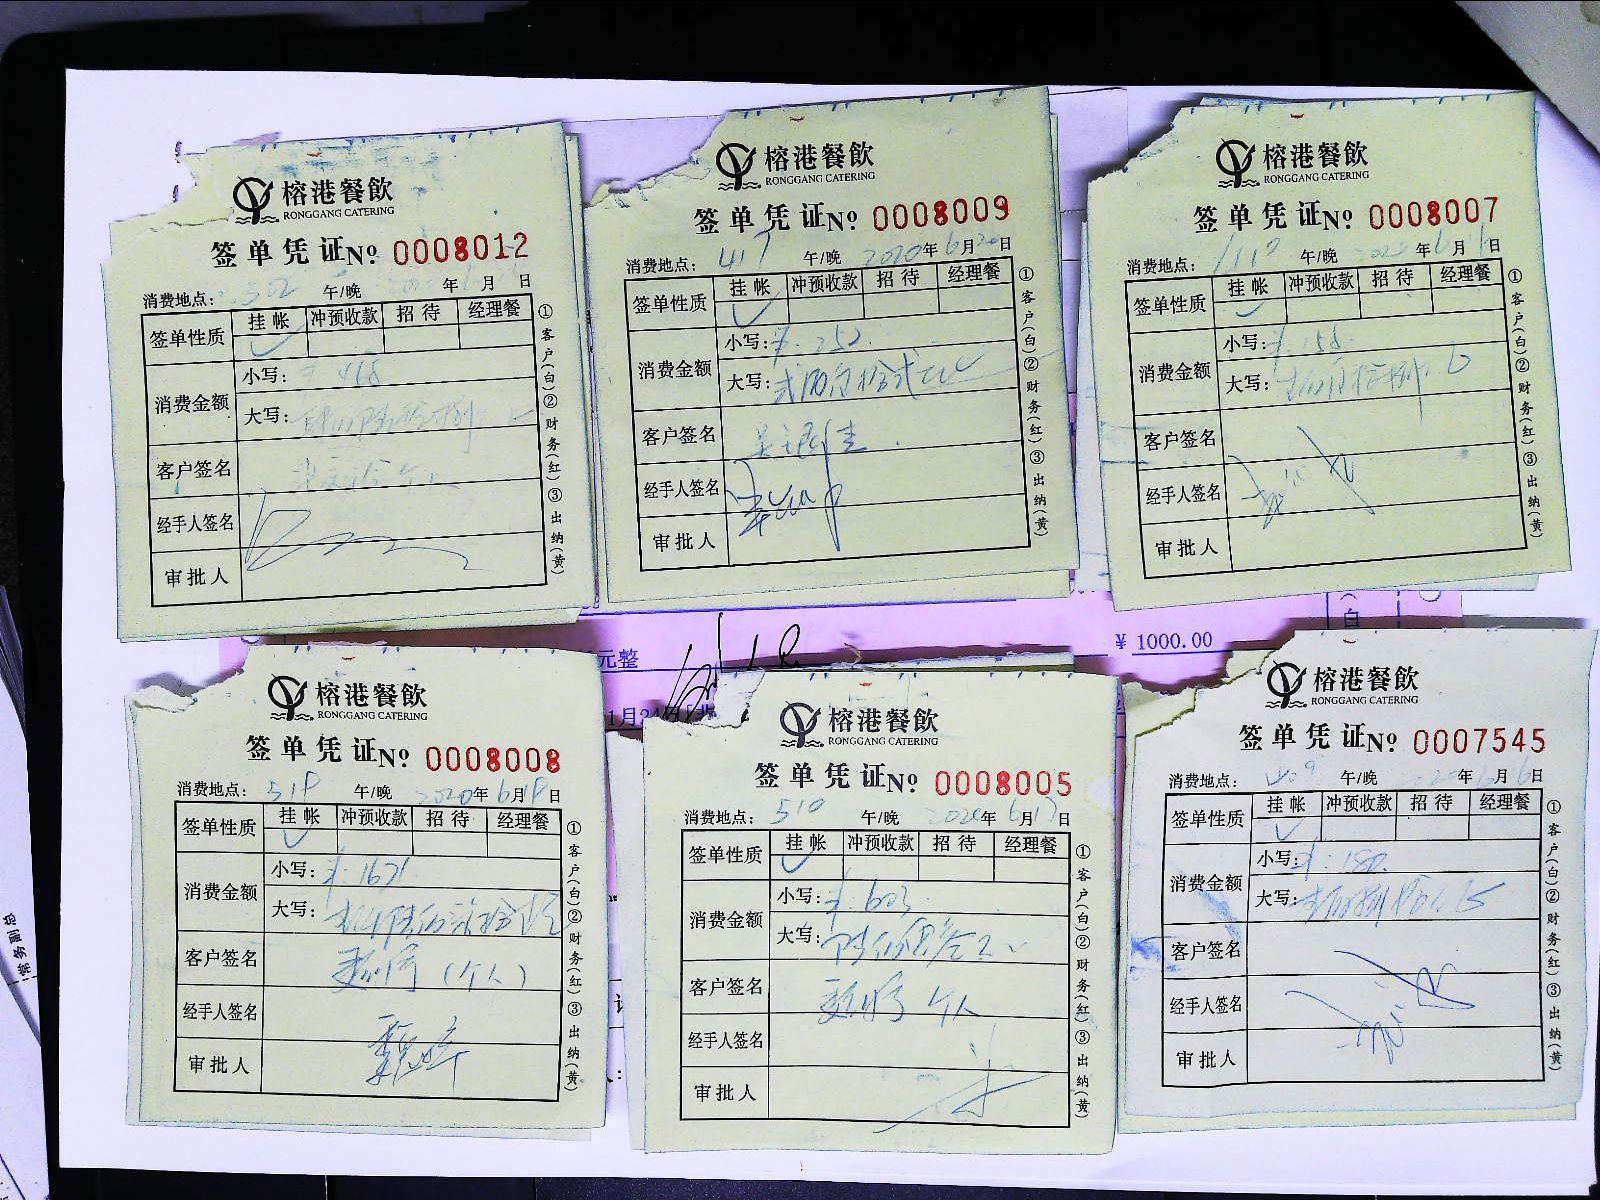 榕港餐飲
RONGGANG CATERING
签单凭证 № 0008012
消费地点: 502 午/晚 年 月 日
签单性质 挂帐 冲预收款 招待 经理餐
消费金额 小写: ¥ 468
大写:
客户签名
经手人签名
审批人
①客户(白)②财务(红)③出纳(黄)
榕港餐飲
RONGGANG CATERING
签单凭证 № 0008009
消费地点: 417 午/晚 2020年6月20日
签单性质 挂帐 冲预收款 招待 经理餐
消费金额 小写: ¥:252.
大写: 贰佰伍拾贰元
客户签名
经手人签名
审批人
①客户(白)②财务(红)③出纳(黄)
榕港餐飲
RONGGANG CATERING
签单凭证 № 0008007
消费地点: 午/晚 2020年6月 日
签单性质 挂帐 冲预收款 招待 经理餐
消费金额 小写: ¥:158.
大写: 壹佰伍拾捌
客户签名
经手人签名
审批人
①客户(白)②财务(红)③出纳(黄)
元整
¥ 1000.00
(白
榕港餐飲
RONGGANG CATERING
签单凭证 № 0008008
消费地点: 518 午/晚 2020年6月18日
签单性质 挂帐 冲预收款 招待 经理餐
消费金额 小写: ¥:1671
大写:
客户签名 (个人)
经手人签名
审批人
①客户(白)②财务(红)③出纳(黄)
榕港餐飲
RONGGANG CATERING
签单凭证 № 0008005
消费地点: 510 午/晚 2020年6月17日
签单性质 挂帐 冲预收款 招待 经理餐
消费金额 小写: ¥:603.
大写: 陆佰零叁元
客户签名 个人
经手人签名
审批人
①客户(白)②财务(红)③出纳(黄)
榕港餐飲
RONGGANG CATERING
签单凭证 № 0007545
消费地点: 409 午/晚 2020年6月16日
签单性质 挂帐 冲预收款 招待 经理餐
消费金额 小写: ¥:180.
大写: 壹佰捌拾元
客户签名
经手人签名
审批人
①客户(白)②财务(红)③出纳(黄)
常务副总